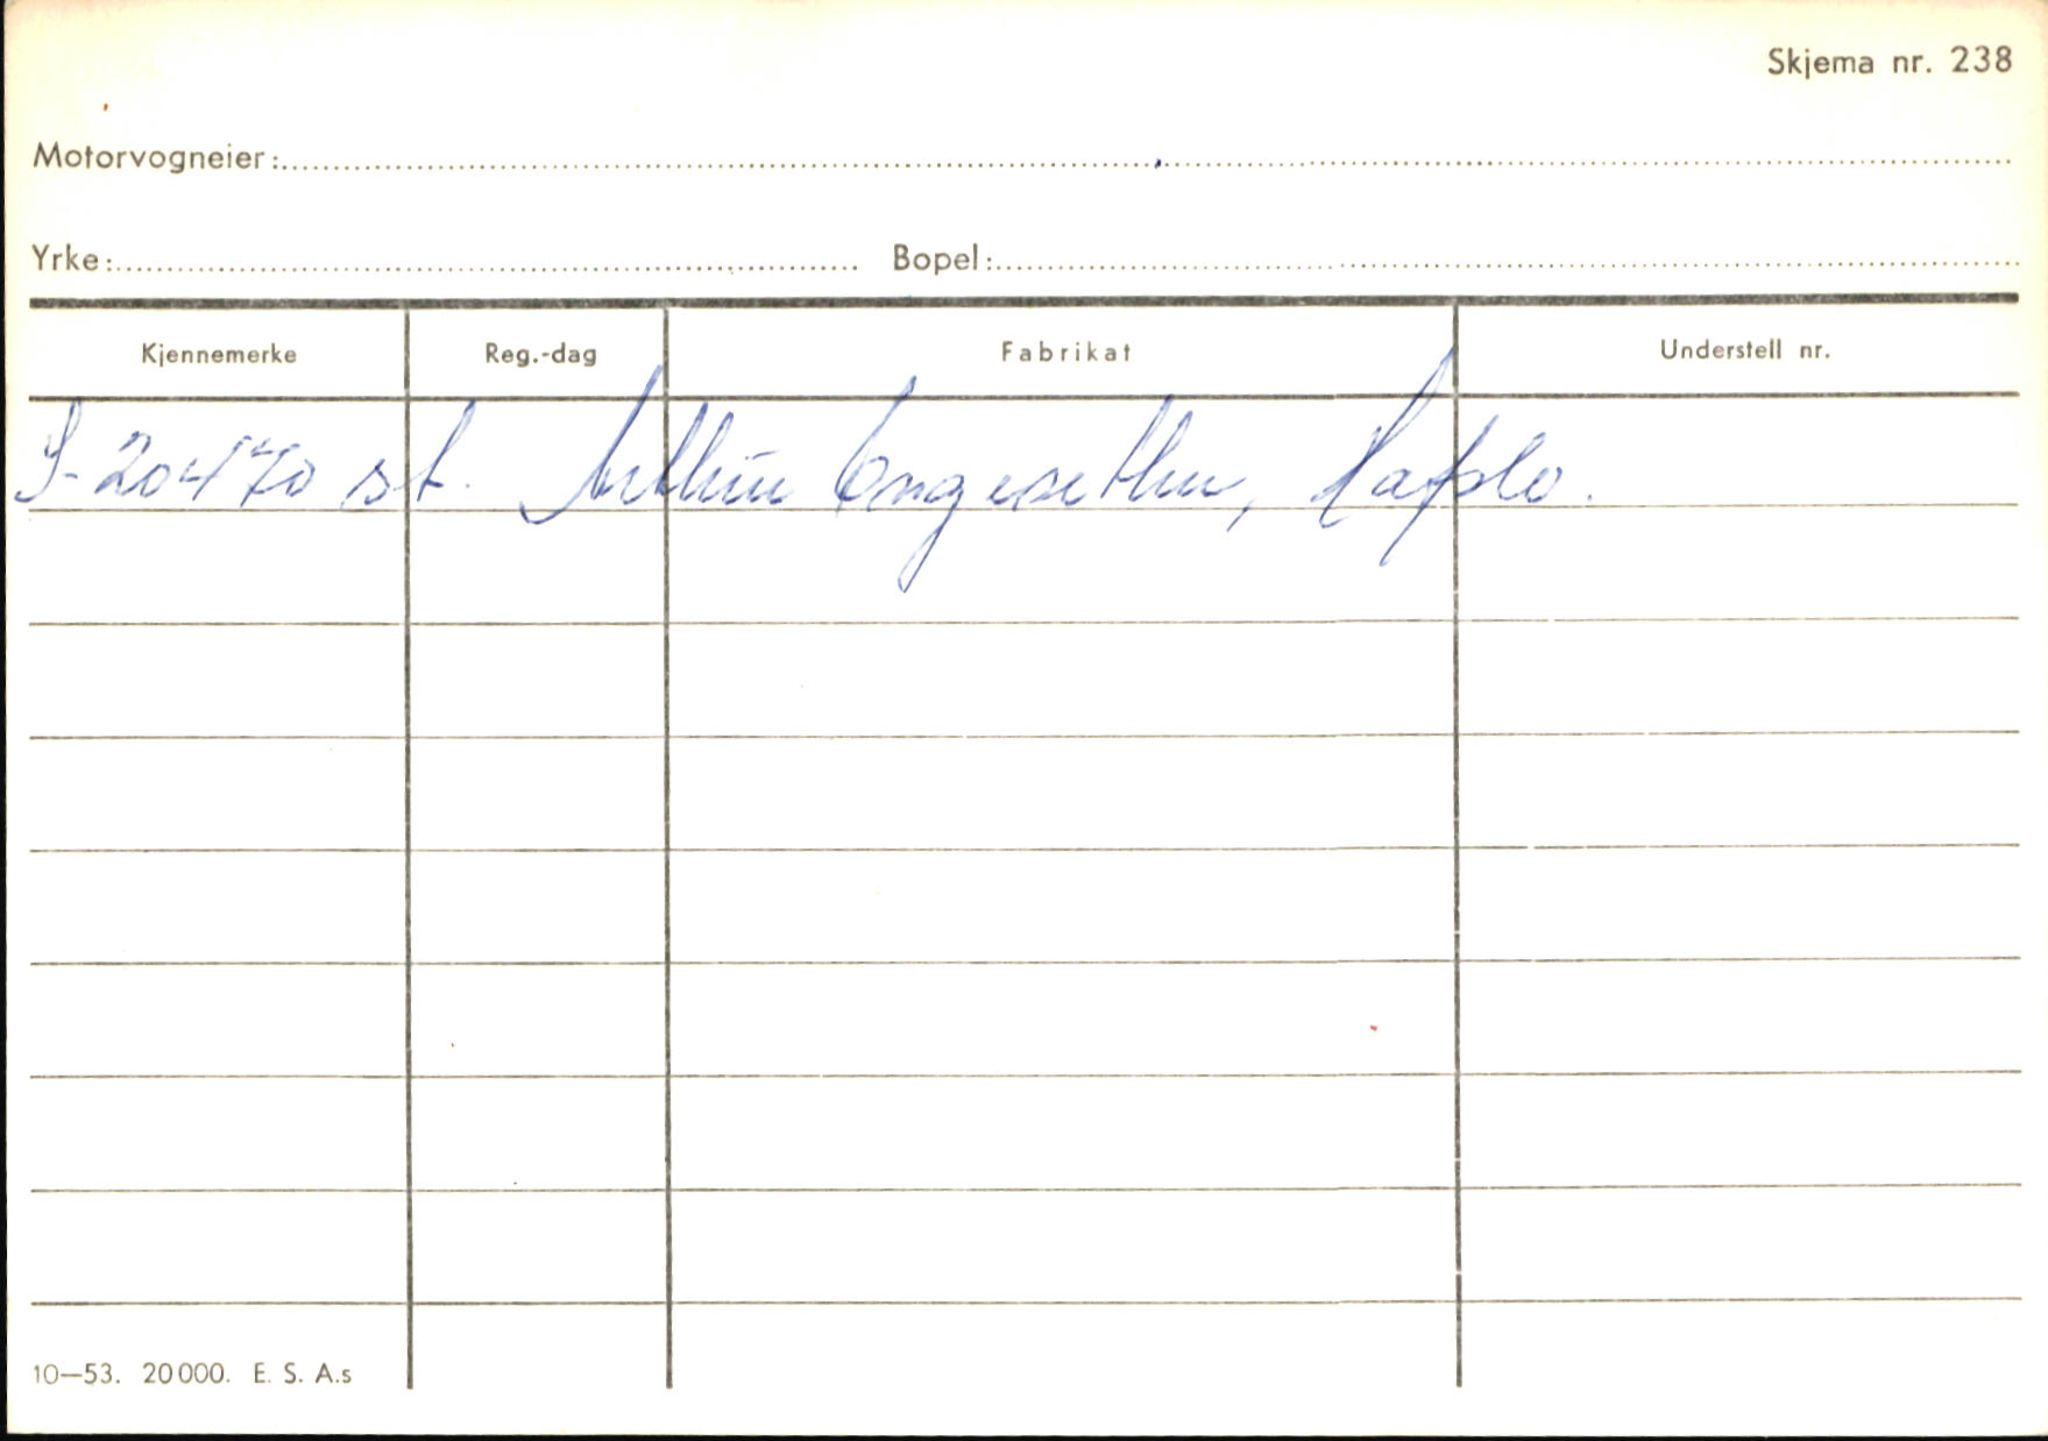 Skjema nr. 238
Motorvogneier:
Yrke: Bopel:
Kjennemerke Reg.-dag Fabrikat Understell nr.
S-20470 st. Arthur Engesæther, Hafslo.
10—53. 20000. E. S. A.s